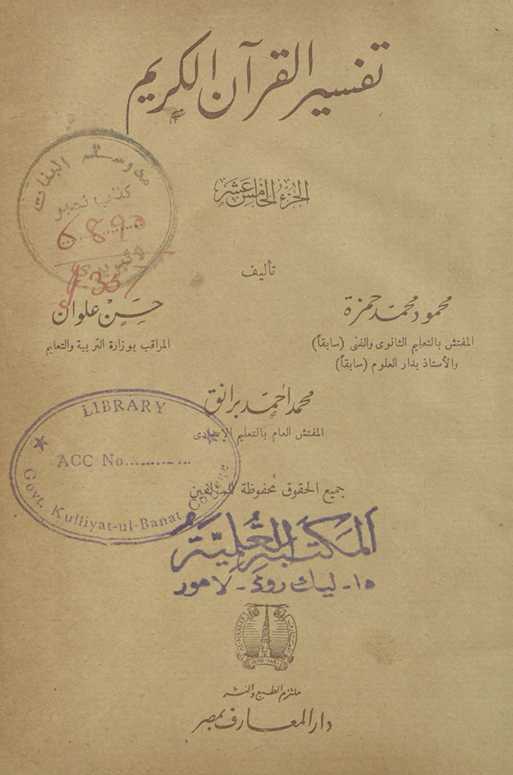 تفسير القرآن الكريم
الجزء الخامس عشر
تأليف
محمود محمد حمزة
المفتش بالتعليم الثانوى والفنى (سابقاً)
والأستاذ بدار العلوم (سابقاً)
حسن علوان
المراقب بوزارة التربية والتعليم
محمد أحمد برانق
المفتش العام بالتعليم الإعدادى
جميع الحقوق محفوظة للمؤلفين
مدرسة البنات
كتاب نمبر
لائبريرى
LIBRARY
ACC No.
Govt. Kulliyat-ul-Banat
المكتبة العلمية
١٥- ليك روڈ - لاهور
ملتزم الطبع والنشر
دار المعارف بمصر